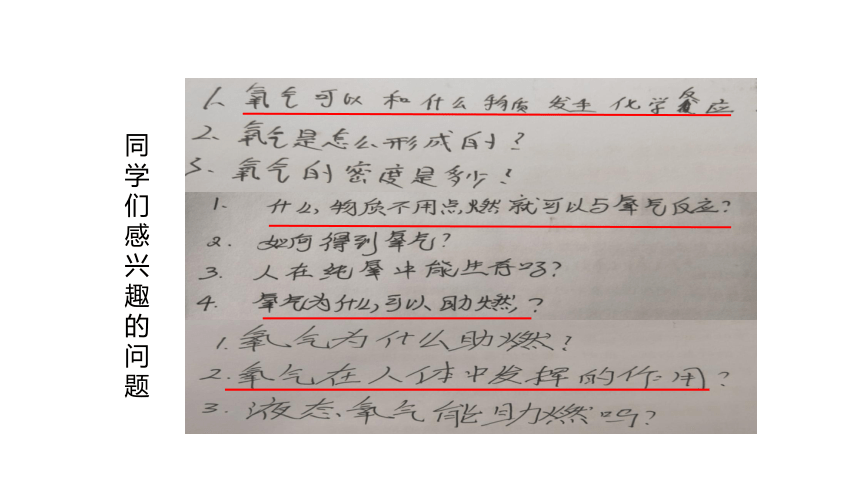 同学们感兴趣的问题
1. 氧气可以和什么物质发生化学反应
2. 氧气是怎么形成的?
3. 氧气的密度是多少?
1. 什么物质不用点燃就可以与氧气反应?
2. 如何得到氧气?
3. 人在纯氧中能生存吗?
4. 氧气为什么可以助燃,?
1. 氧气为什么助燃?
2. 氧气在人体中发挥的作用?
3. 液态氧气能助燃吗?